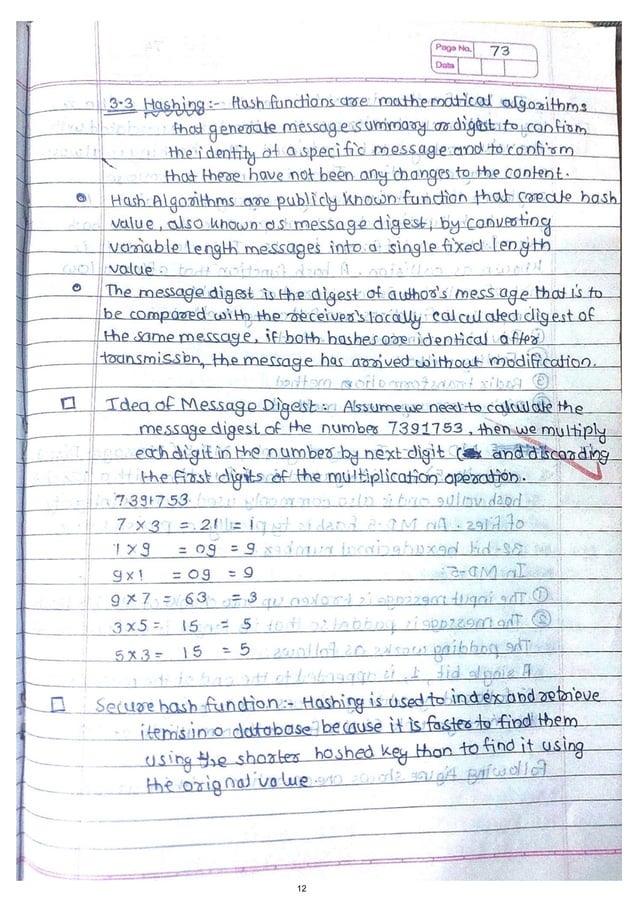 Page No. 73
Date
3.3 Hashing :- Hash functions are mathematical algorithms
that generate message summary or digest to confirm
the identity of a specific message and to confirm
that there have not been any changes to the content.
Hash Algorithms are publicly known function that create hash
value, also known as message digest, by converting
variable length messages into a single fixed length
value
The message digest is the digest of author's message that is to
be compared with the receiver's locally calculated digest of
the same message, if both hashes are identical after
transmission, the message has arrived without modification.
Idea of Message Digest :- Assume we need to calculate the
message digest of the number 7391753, then we multiply
each digit in the number by next digit ( and discarding
the first digits of the multiplication operation.
7391753
7 x 3 = 21 = 1
1 x 9 = 09 = 9
9 x 1 = 09 = 9
9 x 7 = 63 = 3
3 x 5 = 15 = 5
5 x 3 = 15 = 5
Secure hash function :- Hashing is used to index and retrieve
items in a database because it is faster to find them
using the shorter hashed key than to find it using
the orignal value.
12